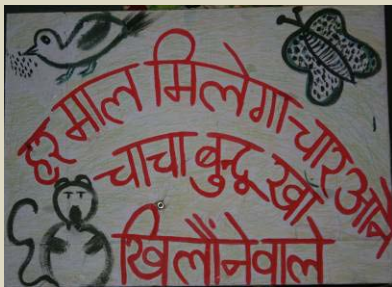 हर माल मिलेगा चार आने
चाचा बुन्दू खाँ
खिलौंनेवाले